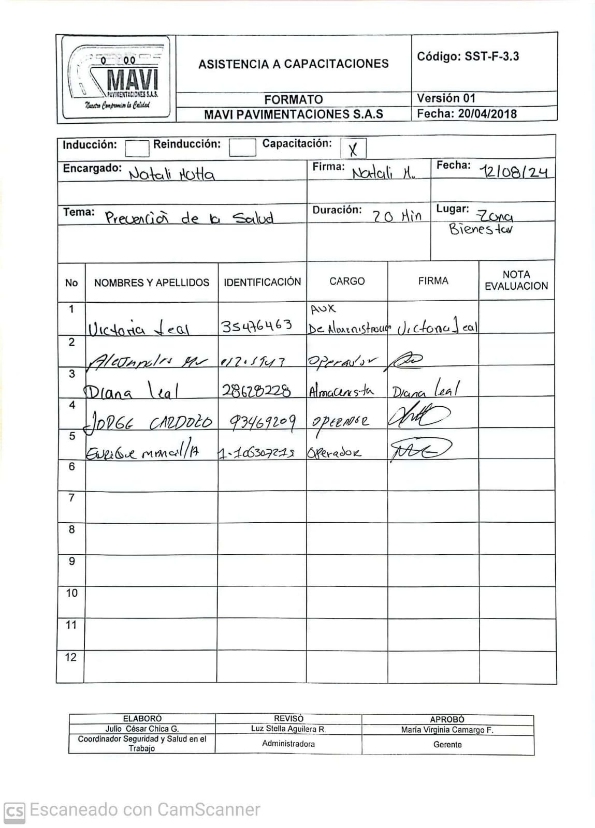 MAVI
PAVIMENTACIONES S.A.S.
Nuestro Compromiso la Calidad
ASISTENCIA A CAPACITACIONES
Código: SST-F-3.3
FORMATO
Versión 01
MAVI PAVIMENTACIONES S.A.S
Fecha: 20/04/2018
Inducción: Reinducción: Capacitación: X
Encargado: Natali Motta Firma: Natali M. Fecha: 12/08/24
Tema: Prevención de la Salud Duración: 20 Min Lugar: Zona
Bienestar
No NOMBRES Y APELLIDOS IDENTIFICACIÓN CARGO FIRMA NOTA EVALUACION
1 Victoria Leal 35476463 Aux De Victoria Leal
2 Operador
3 Diana Leal 28628228 Almacenista Diana Leal
4 JORGE CARDOZO 93469209 OPERADOR
5 Enrique 1-106307213 Operador
6
7
8
9
10
11
12
ELABORÓ REVISÓ APROBÓ
Julio César Chica G. Luz Stella Aguilera R. María Virginia Camargo F.
Coordinador Seguridad y Salud en el Trabajo Administradora Gerente
CS Escaneado con CamScanner